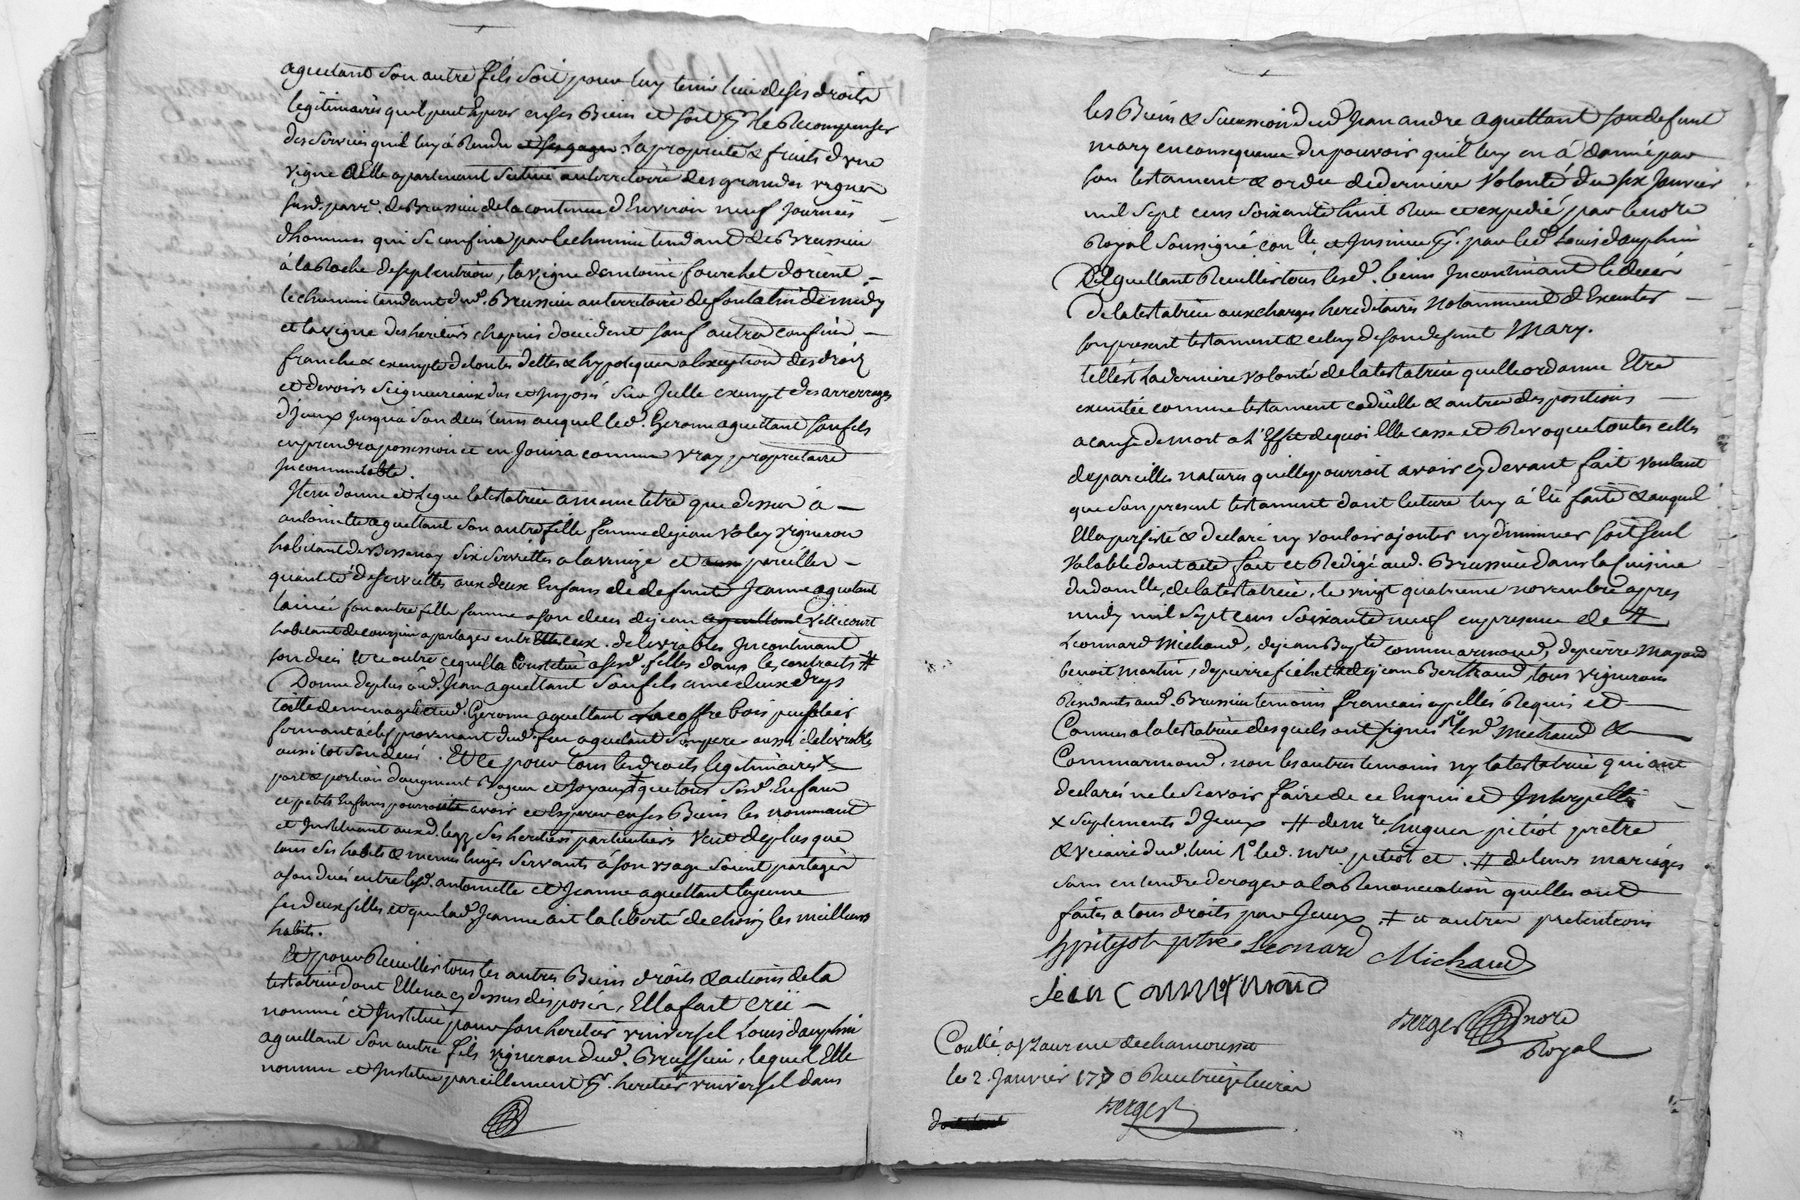 aguetant son autre fils soit pour luy tenir lieu de ses droits
legitimaires qu'il peut esperer en ses Biens et soit pr. le Recompenser
des services qu'il luy à Rendu et ses gages. La proprieté & fruits d'une
vigne a Elle apartenant scituée au territoire des grandes vignes
susd. parr.e de Brussieu de la contenue d'Environ neuf Journeés
d'hommes qui se confine par le chemin tendant de Brussieu
à la Roche de septentrion, la vigne d'antoine fourchet d'orient
le chemin tendant dud. Brussieu au territoire de de midy
et la vigne des heritiers chapuis d'occident sauf autres confins
franche & exempte de toutes dettes & hypoteques a l'exception des droits
et devoirs seigneuriaux dus et Imposés sur Icelle exempt des arrerages
d'Iceux Jusqu'a son decés tems auquel led. Gerome aguettant son fils
en prendra possession et en Jouira comme vray proprietaire
Incommutable.
Item donne et Legue la testatrice a meme titre que dessus à
antoinette aguettant son autre fille femme de jean Voley vigneron
habitant de Bessenay six serviettes a la venize et aux pareilles
quantité de serviettes aux deux Enfans de defunte Jeanne aguetant
lainée son autre fille femme a son deces de jean aguettant Villecourt
habitant de courzieu a partager entre Elle eux. delivrables Incontinant
son decés Et ce outre ce qu'elle a Constitué a sesd. filles dans les contrats #
Donne de plus aud. Jean aguettant son fils ainé deux draps
toille de menage Et aud. Gerome aguettant un coffre bois
fermant à clef provenant dud. feu aguetant son pere aussi delivrable
aussitot son decés. Et ce pour tous les droits legitimaires x
part & portion d'augment Bagues et Joyaux ‡ que tous sesd. Enfans
et petits Enfans pourroient avoir et Esperer en ses Biens les nommant
et Instituant auxd. legs ses heritiers particuliers Veut de plus que
tous ses habits & menus linges servants à son usage soient partagés
a son decés entre lesd. antoinette et Jeanne aguettant cayenne
ses deux filles et que lad. Jeanne ait la liberté de choisir les meilleurs
habits.
Et pour Recueillir tous les autres Biens droits & actions de la
testatrice dont Elle n'a cy dessus disposés, Ella fait créé
nommé et Institué pour son heritier universel Louis dauphin
aguettant son autre fils vigneron dud. Brussieu, lequel Elle
nomme et Institue pareillement pr. heritier universel dans
les Biens & succession dud. Jean andre aguettant son defunt
mary en consequence du pouvoir qu'il luy en à donné par
son testament & ordre de derniere Volonté du six Janvier
mil sept cens soixante huit Recu et expedié par le no.re
Royal soussigné con.lle et Insinué pr. par led. Louis dauphin
aguettant Recueillir tous lesd. biens Incontinant le decés
de la testatrice aux charges hereditaires Notamment d'Executer
son present testament & celuy de son defunt Mary.
tell est La derniere volonté de la testatrice quelle ordonne Etre
executée comme testament codicille & autres dispositions
a cause de mort a l'Effet de quoi Elle casse et Revoque toutes celles
de pareilles natures qu'elle pourroit avoir cy devant fait voulant
que son present testament dont lecture luy à Eté faite & auquel
Ella persisté & declaré n'y vouloir ajouter ny diminuer soit seul
Valable dont acte fait et Redigé aud. Brussieu dans la Cuisine
du domicile de la testatrice, le vingt quatrieme novembre apres
midy mil sept cens soixante neuf en presence de #
Leonnard Michaud, de jean Bapte commarmond, de pierre Mazard
benoit martin, de pierre fichet & de jean Berthaud, tous vignerons
Residants aud. Brussieu temoins francois appellés Requis et
Connus a la testatrice desquels ont signés 1° lesd. Michaud &
Commarmond, non les autres temoins ny la testatrice qui ont
declarés ne le scavoir faire de ce Enquis et Interpellés
x suplements d'Iceux # de m.re hugues pitiot pretre
& vicaire dud. lieu 1° led. m.re pitiot et. # de leurs mariages
sans entendre deroger a la Renonciation quelles ont
faites a tous droits par Iceux ‡ et autres pretentions
h pitiyot ptre Leonard Michaud
Jean Commarmond
Berger no.re
Royal
Conllé a St Laurent de chamousset
le 2. Janvier 1770 Recu treize livres
Berger